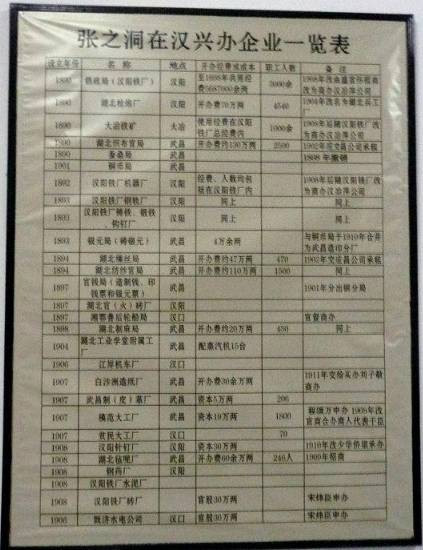 张之洞在汉兴办企业一览表
设立年份 名称 地点 开办经费或成本 职工人数 备注
1890 铁政局(汉阳铁厂) 汉阳 至1898年共用经费5687000余两 3000余 1908年改由盛宣怀招商改为商办汉冶萍公司
1890 湖北枪炮厂 汉阳 开办费70万两 4540 1904年改名为湖北兵工厂
1890 大冶铁矿 大冶 使用经费在汉阳铁厂总经费内 1000余 1908年后随汉阳铁厂改为商办汉冶萍公司
1890 湖北织布官局 武昌 开办费约130万两 2500 1902年交应昌公司承租
1890 蚕桑局 武昌 1898年撤销
1901 铜币局 武昌
1892 汉阳铁厂机器厂 汉阳 经费、人数均包括在汉阳铁厂内 1908年后随汉阳铁厂改为商办汉冶萍公司
1893 汉阳铁厂钢轨厂 汉阳 同上 同上
1893 汉阳铁厂铸铁、锻铁、钩钉厂 汉阳 同上 同上
1893 银元局(铸银元) 武昌 4万余两 与铜币局于1910年合并为武昌造印分厂
1894 湖北缫丝局 武昌 开办费约47万两 470 1902年交应昌公司承租
1894 湖北纺纱官局 武昌 开办费约110万两 1500 同上
1897 官钱局(造制钱、印钱票和银元票) 武昌 1901年分出铜分局
1897 湖北官(火)砖厂 汉阳
1897 湘鄂善后轮船局 汉口 官督商办
1898 湖北制麻局 武昌 开办费约20万两 450 同上
1904 湖北工业学堂附属工厂 武昌 配蒸汽机15台
1906 江岸机车厂 汉口
1907 白沙洲造纸厂 武昌 开办费30余万两 1911年交给从办刘子敬商办
1907 武昌制(皮)革厂 武昌 资本5万两 206
1907 模范大工厂 武昌 资本19万两 1800 1908年改官商合办商人代表
1907 贫民大工厂 汉口 70
1908 汉阳针钉厂 汉阳 资本30万两 1910年改少华侨梁承办
1908 湖北毡呢厂 武昌 开办费60余万两 246人 1909年招商
1908 钢药厂 汉阳
1908 汉阳铁厂水泥厂
1908 汉阳铁厂砖厂 官股30万两 宋炜臣申办
1906 既济水电公司 汉口 官股30万两 宋炜臣申办